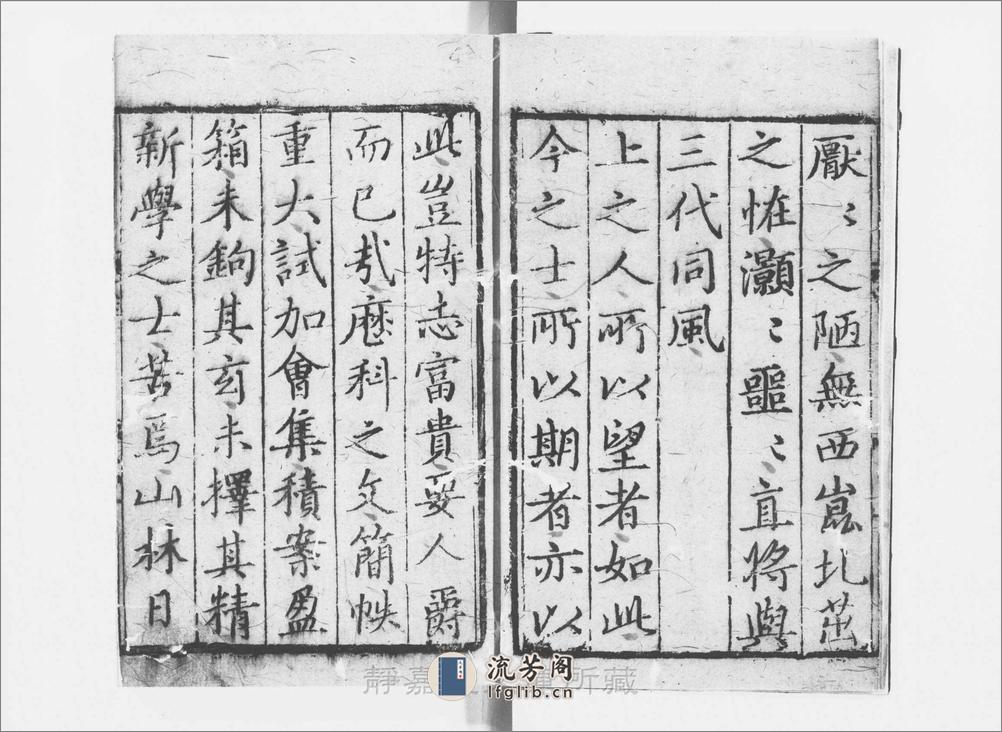 厭〻之陋無西崑北茁
之恠灝〻噩〻直將與
三代同風
上之人所以望者如此
今之士所以期者亦以
此豈特志富貴要人爵
而已㢤歷科之文簡帙
重大試加會集積案盈
箱未鉤其玄未擇其精
新學之士苦焉山林日
靜嘉 所藏
流芳阁
lfglib.cn